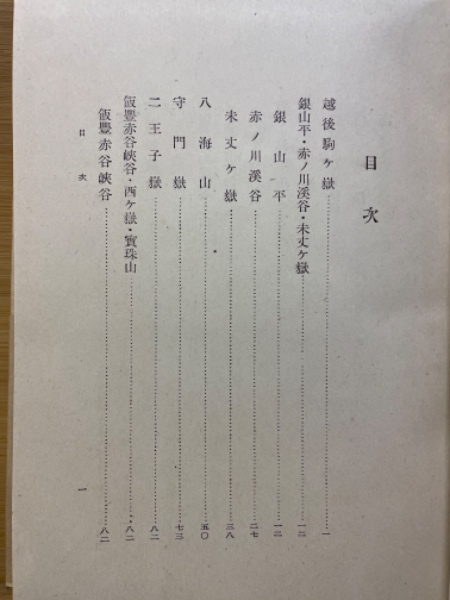 目次
越後駒ヶ嶽……一
銀山平・赤ノ川溪谷・未丈ヶ嶽……一二
銀山平……一二
赤ノ川溪谷……二七
未丈ヶ嶽……三八
八海山……五〇
守門嶽……七三
二王子嶽……八二
飯豐赤谷峽谷・西ヶ嶽・寳珠山……八二
飯豐赤谷峽谷……八二
目次
一